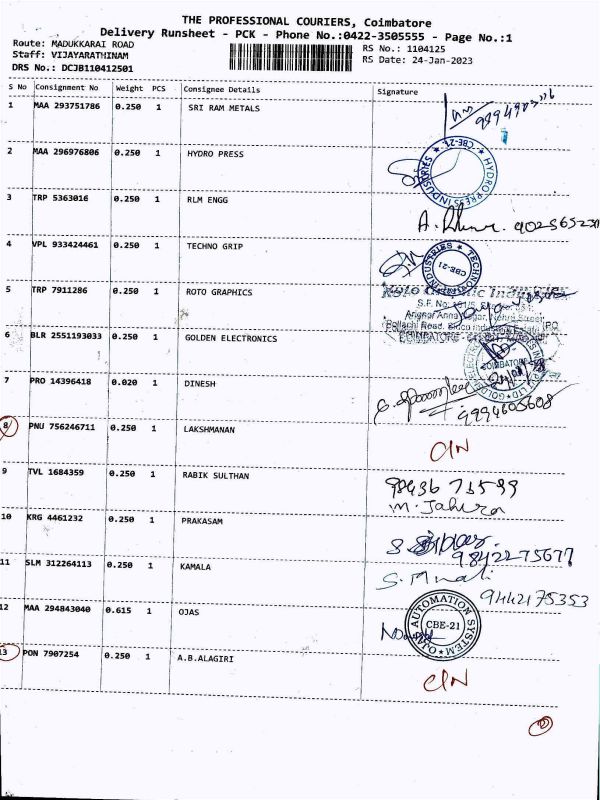 THE PROFESSIONAL COURIERS, Coimbatore
Delivery Runsheet - PCK - Phone No.:0422-3505555 - Page No.:1
Route: MADUKKARAI ROAD RS No.: 1104125
Staff: VIJAYARATHINAM RS Date: 24-Jan-2023
DRS No.: DCJB110412501
S No Consignment No Weight PCS Consignee Details Signature
1 MAA 293751786 0.250 1 SRI RAM METALS
2 MAA 296976806 0.250 1 HYDRO PRESS
HYDRO PRESS INDUSTRIES CBE-21
3 TRP 5363016 0.250 1 RLM ENGG
4 VPL 933424461 0.250 1 TECHNO GRIP
INDUSTRIES CBE-21
5 TRP 7911286 0.250 1 ROTO GRAPHICS
6 BLR 2551193033 0.250 1 GOLDEN ELECTRONICS
COIMBATORE
7 PRO 14396418 0.020 1 DINESH
9994605608
8 PNU 756246711 0.250 1 LAKSHMANAN CIN
9 TVL 1684359 0.250 1 RABIK SULTHAN
M. Jahira
10 KRG 4461232 0.250 1 PRAKASAM
9842275677
11 SLM 312264113 0.250 1 KAMALA
9442175353
12 MAA 294843040 0.615 1 OJAS
AUTOMATION SYSTEM CBE-21
13 PON 7907254 0.250 1 A.B.ALAGIRI CIN
2